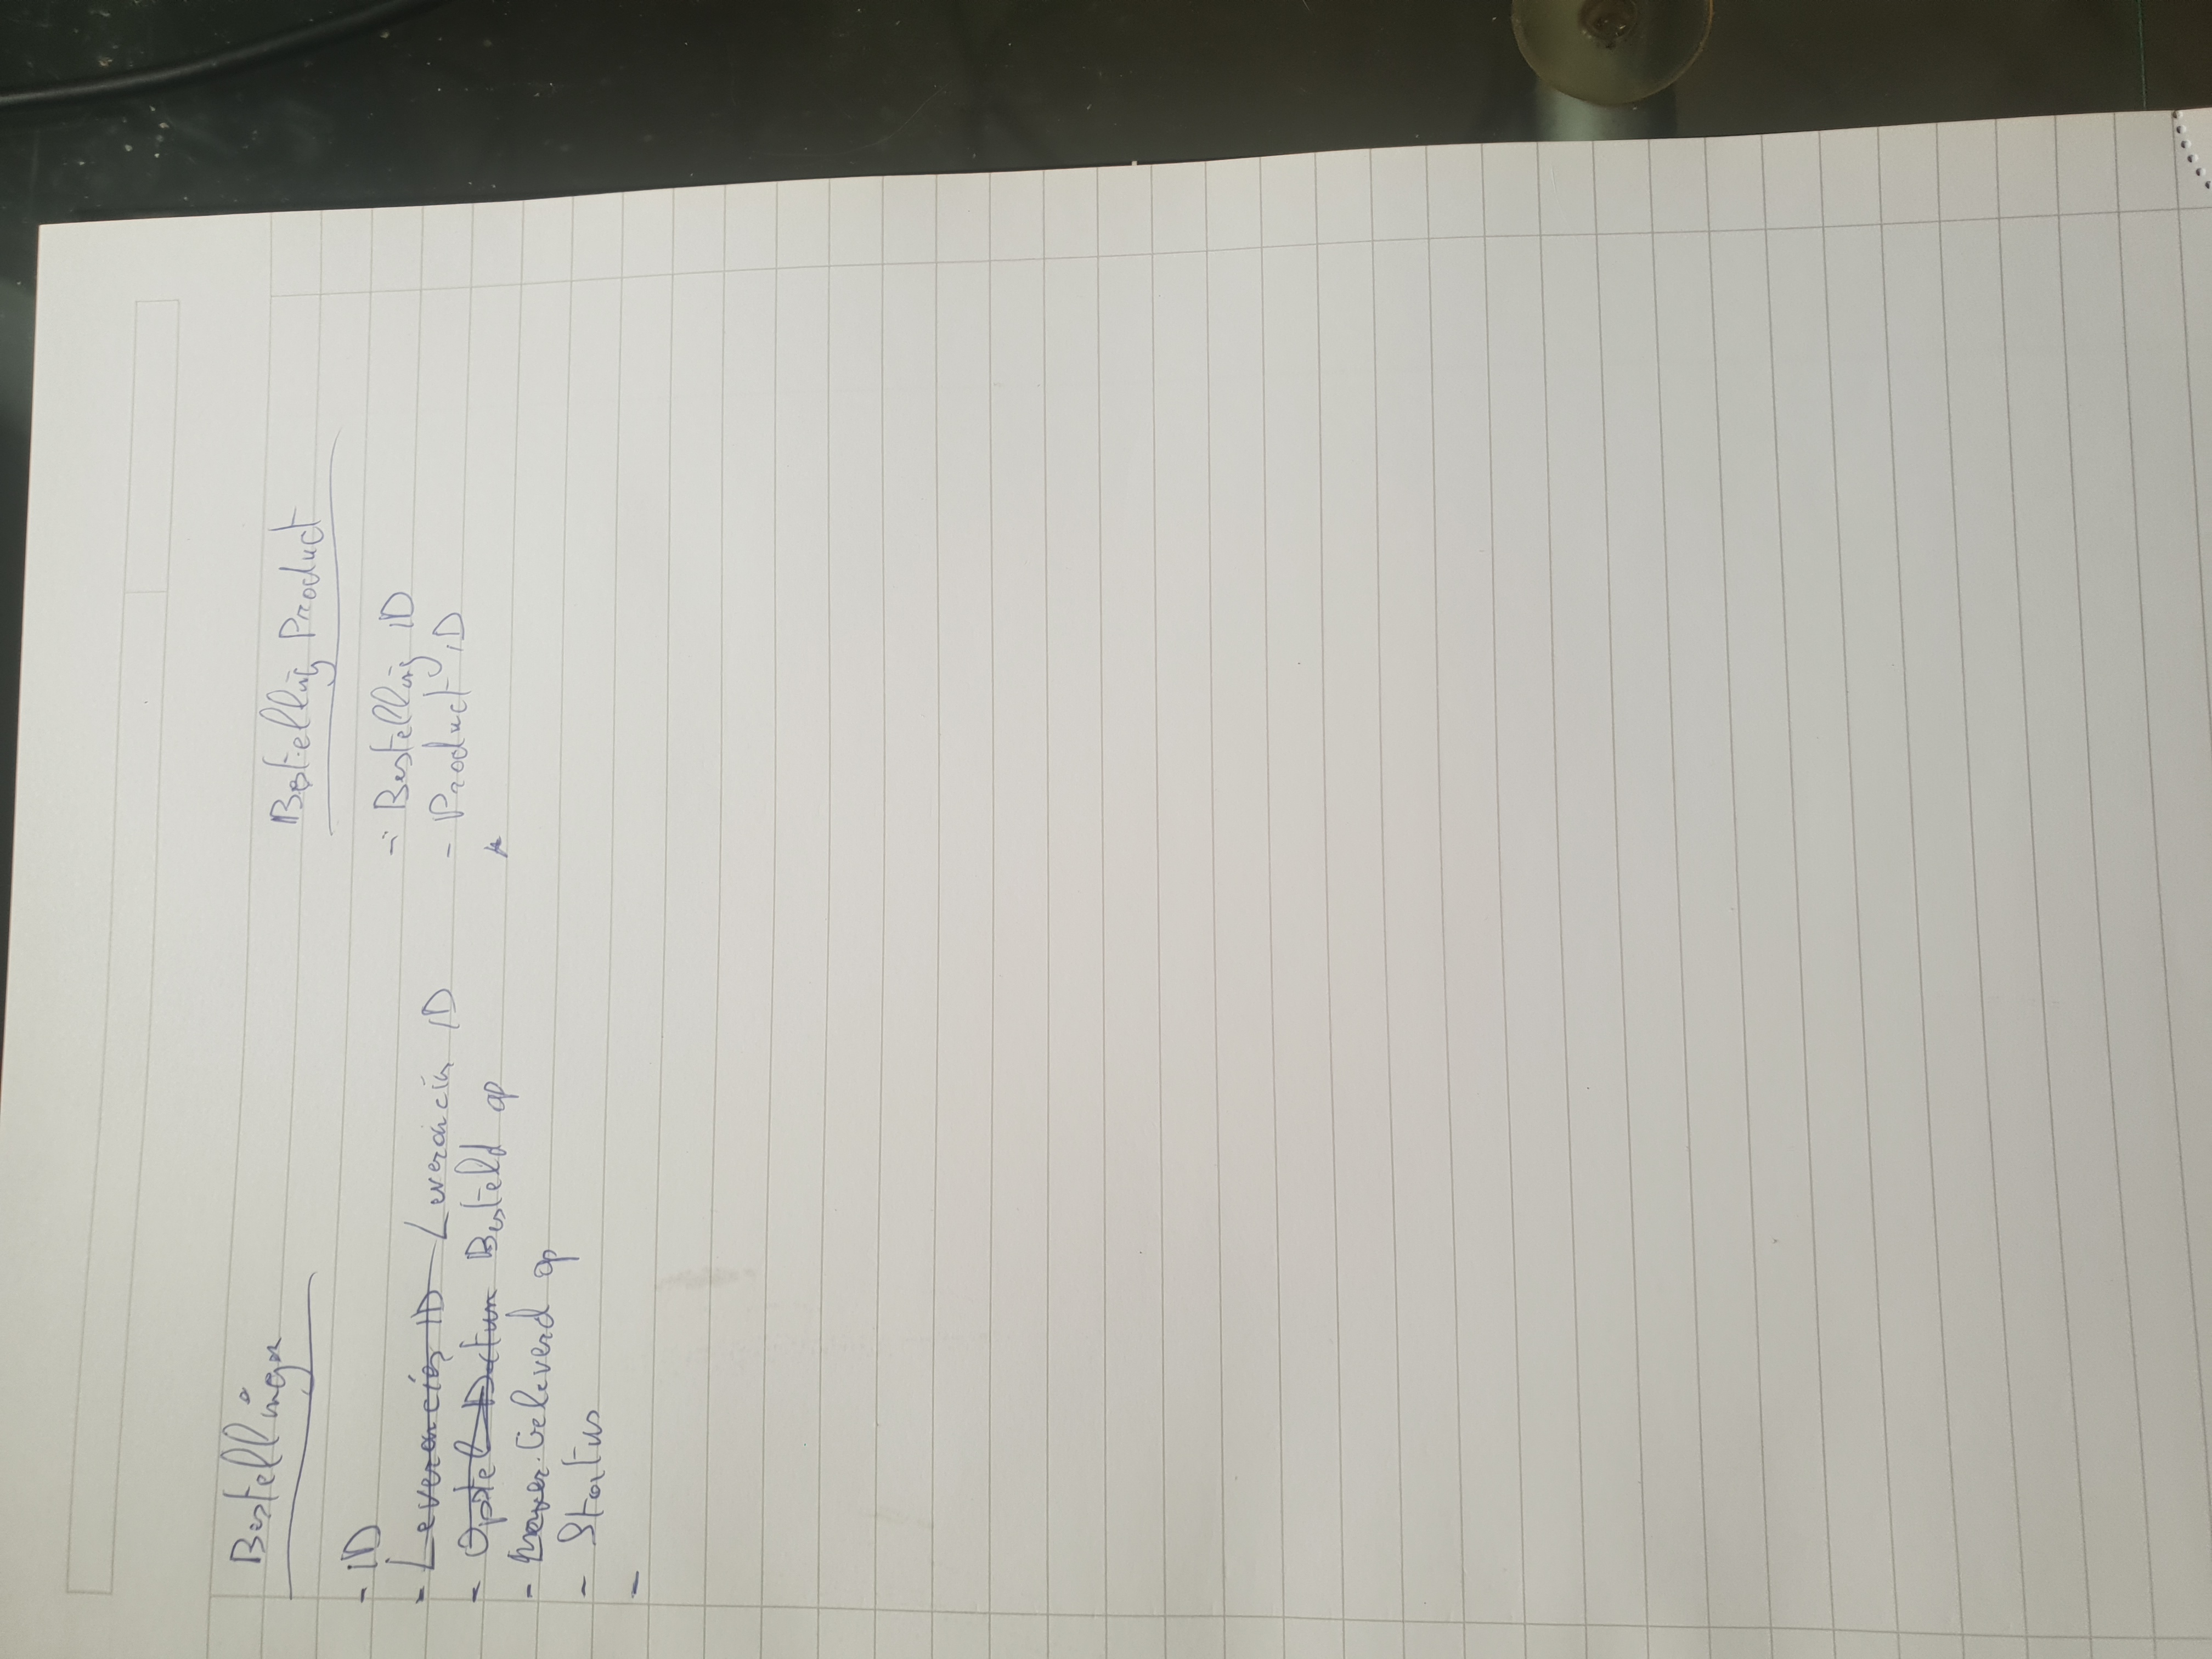 Bestellingen
- ID
- Leverancier ID Leverancier ID
- Opstel Datum Besteld op
- Geleverd op
- Status
-
Bestelling Product
- Bestelling ID
- Product ID